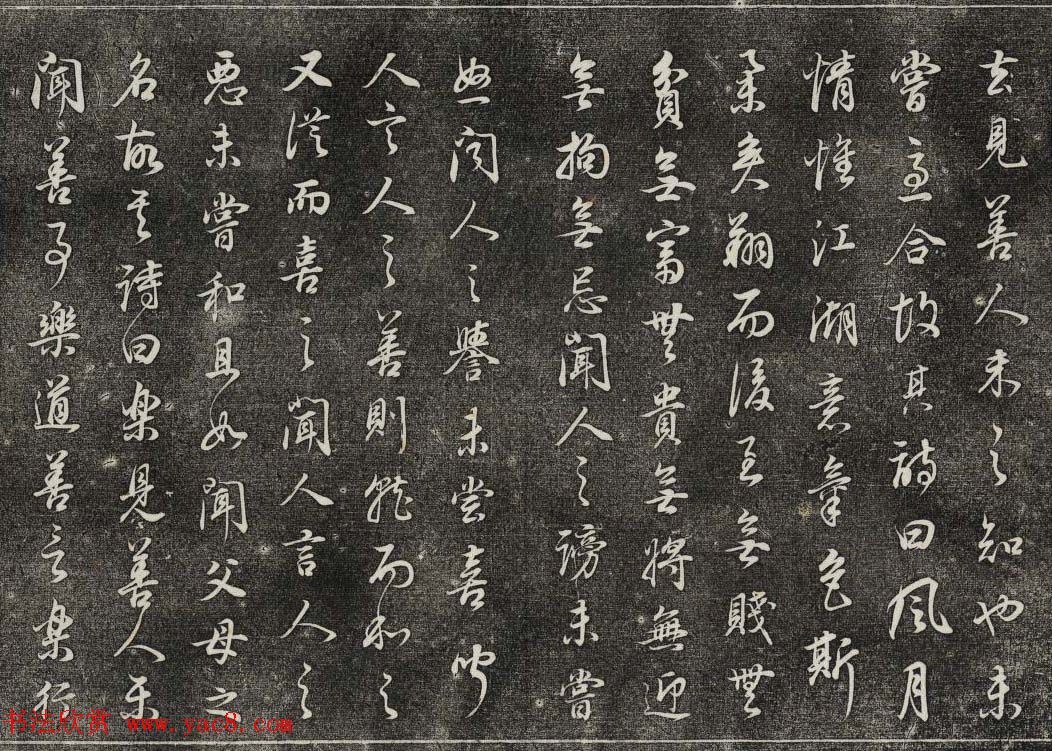 去見善人未之知也未
嘗急合故其詩曰風月
情懷江湖意氣色斯
舉矣翔而後至無賤無
貧無富無貴無將無迎
無拘無忌聞人之謗未嘗
怒聞人之譽未嘗喜聞
人言人之善則就而和之
又從而喜之聞人言人之
惡未嘗和且如聞父母之
名故其詩曰樂見善人樂
聞善事樂道善言樂行
书法欣赏 www.yac8.com